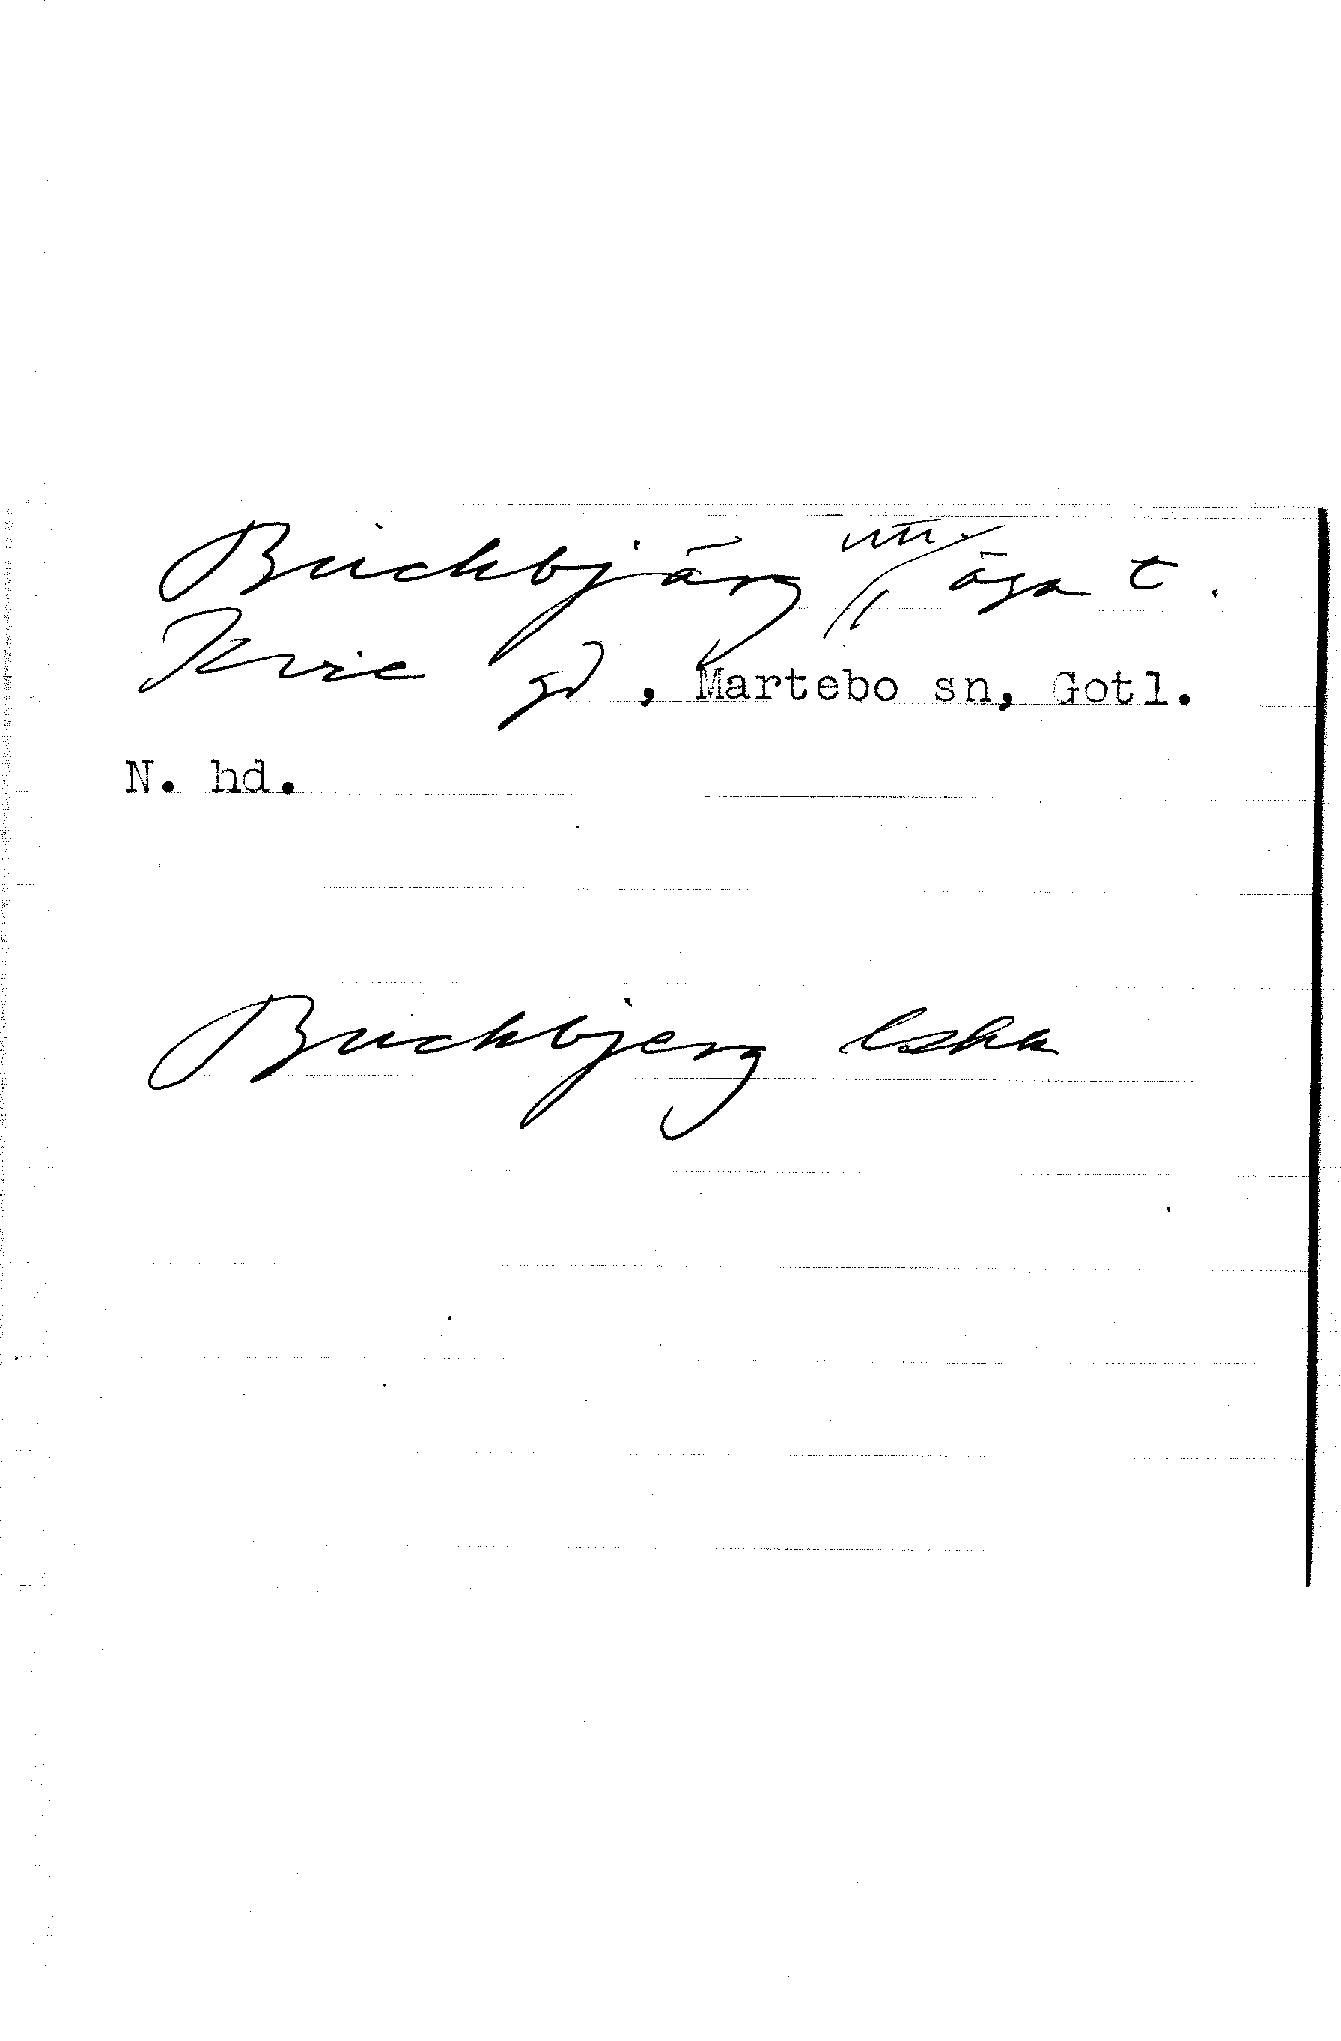 Buckbjärg äga t.
Kvie gd, Martebo sn, Gotl.
N. hd.
Buckbjerg